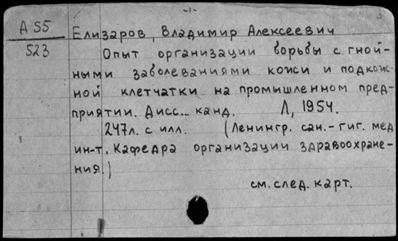 -1-
А 55 Елизаров, Владимир Алексеевич
523 Опыт организации борьбы с гной-
ными заболеваниями кожи и подкож-
ной клетчатки на промышленном пред-
приятии. Дисс... канд. Л, 1954.
247л. с илл. (Ленингр. сан.-гиг. мед
ин-т. Кафедра организации здравоохране-
ния.)
см. след. карт.